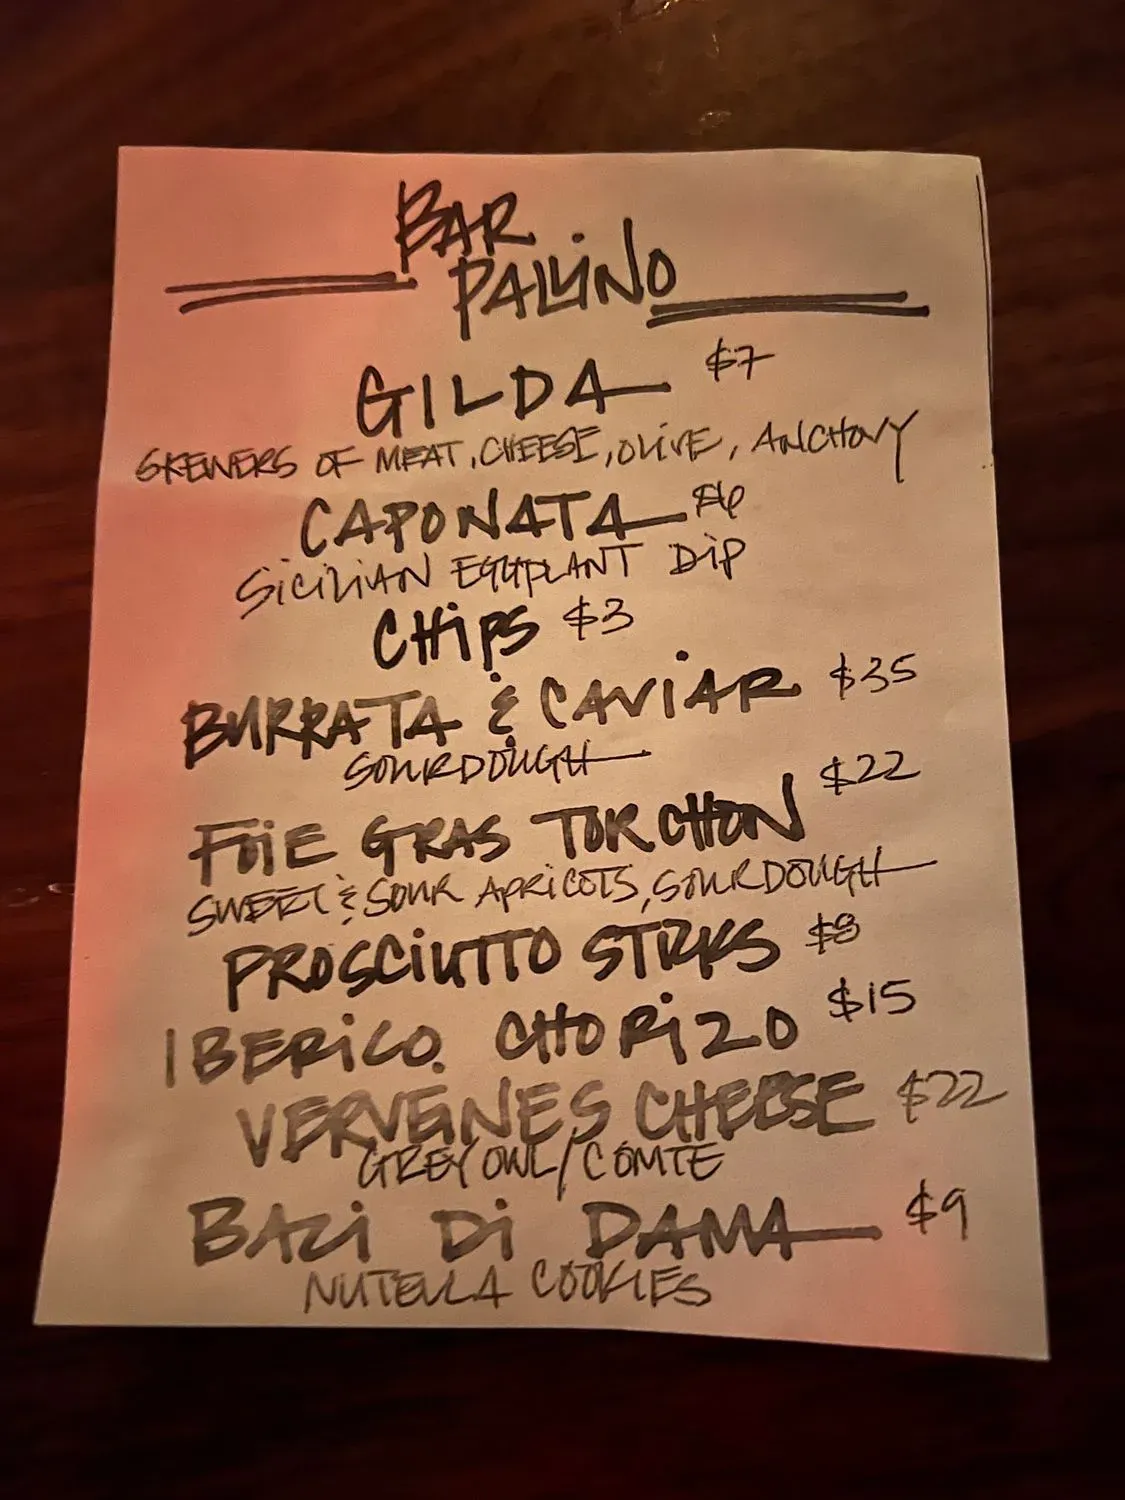 BAR
PALLINO
GILDA $7
SKEWERS OF MEAT, CHEESE, OLIVE, ANCHOVY
CAPONATA $6
SICILIAN EGGPLANT DIP
CHIPS $3
BURRATA & CAVIAR $35
SOURDOUGH
FOIE GRAS TORCHON $22
SWEET & SOUR APRICOTS, SOURDOUGH
PROSCIUTTO STIRKS $8
IBERICO CHORIZO $15
VERVEINES CHEESE $22
GREY OWL/COMTE
BACI DI DAMA $9
NUTELLA COOKIES